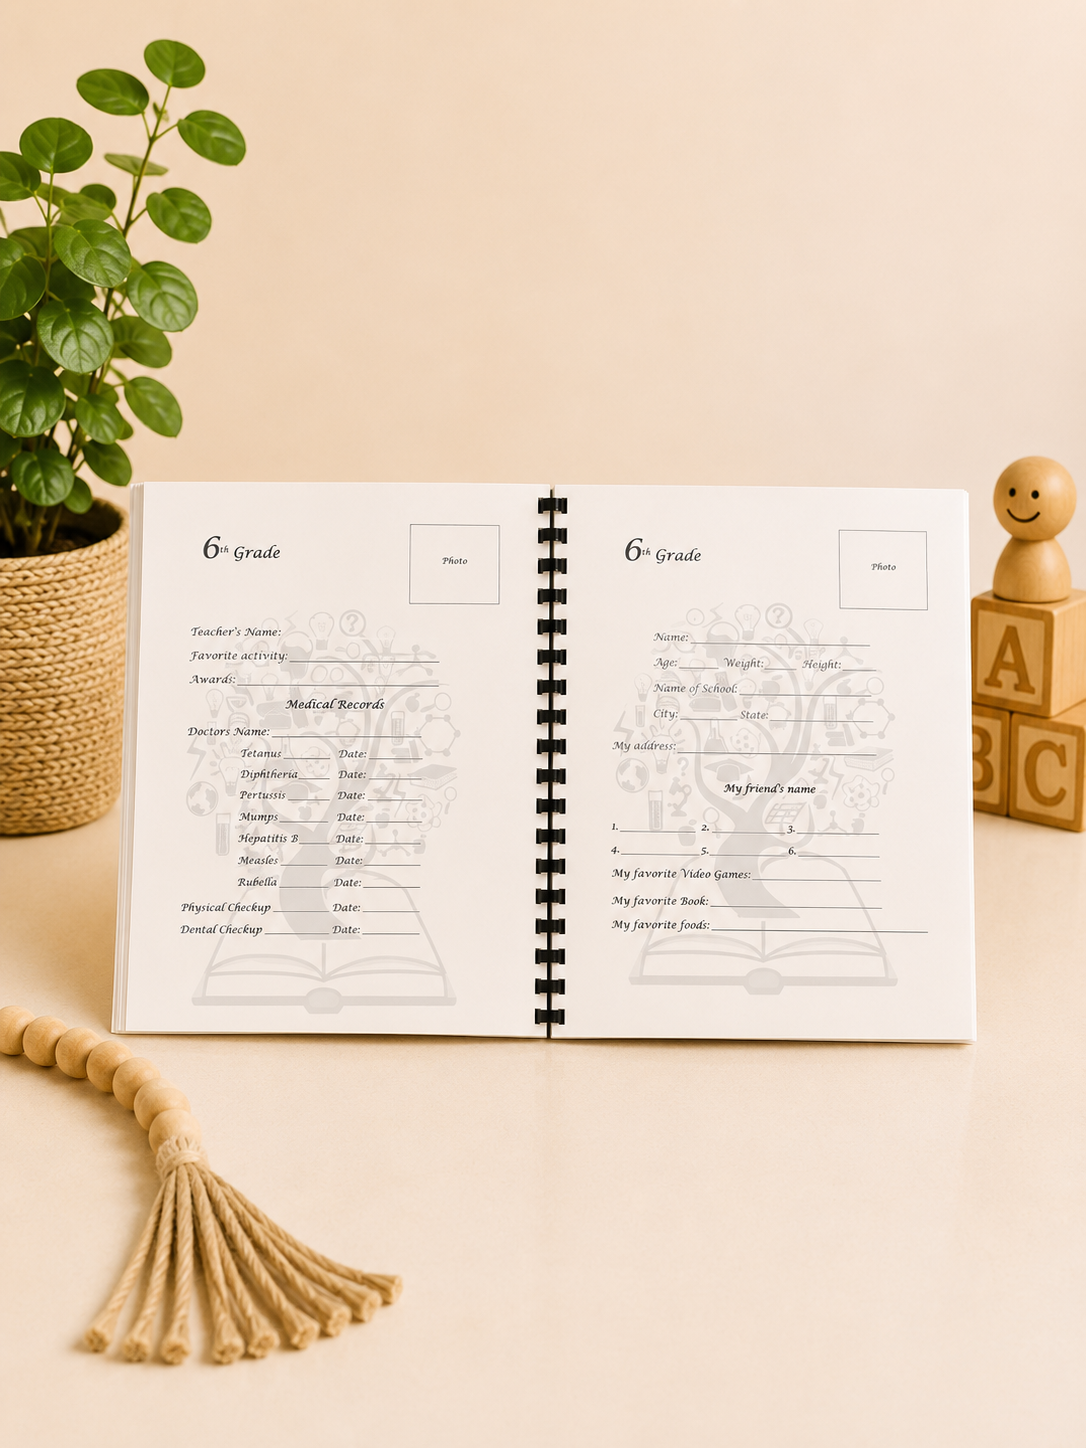 6th Grade
Photo
Teacher's Name:
Favorite activity:
Awards:
Medical Records
Doctors Name:
Tetanus Date:
Diphtheria Date:
Pertussis Date:
Mumps Date:
Hepatitis B Date:
Measles Date:
Rubella Date:
Physical Checkup Date:
Dental Checkup Date:
6th Grade
Photo
Name:
Age: Weight: Height:
Name of School:
City: State:
My address:
My friend's name
1. 2. 3.
4. 5. 6.
My favorite Video Games:
My favorite Book:
My favorite foods:
A
B C